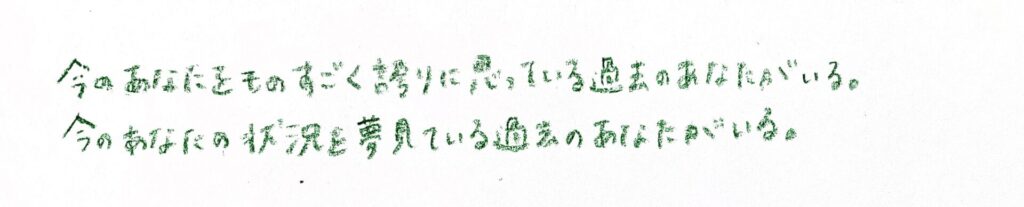 今のあなたをものすごく誇りに思っている過去のあなたがいる。
今のあなたの状況を夢見ている過去のあなたがいる。